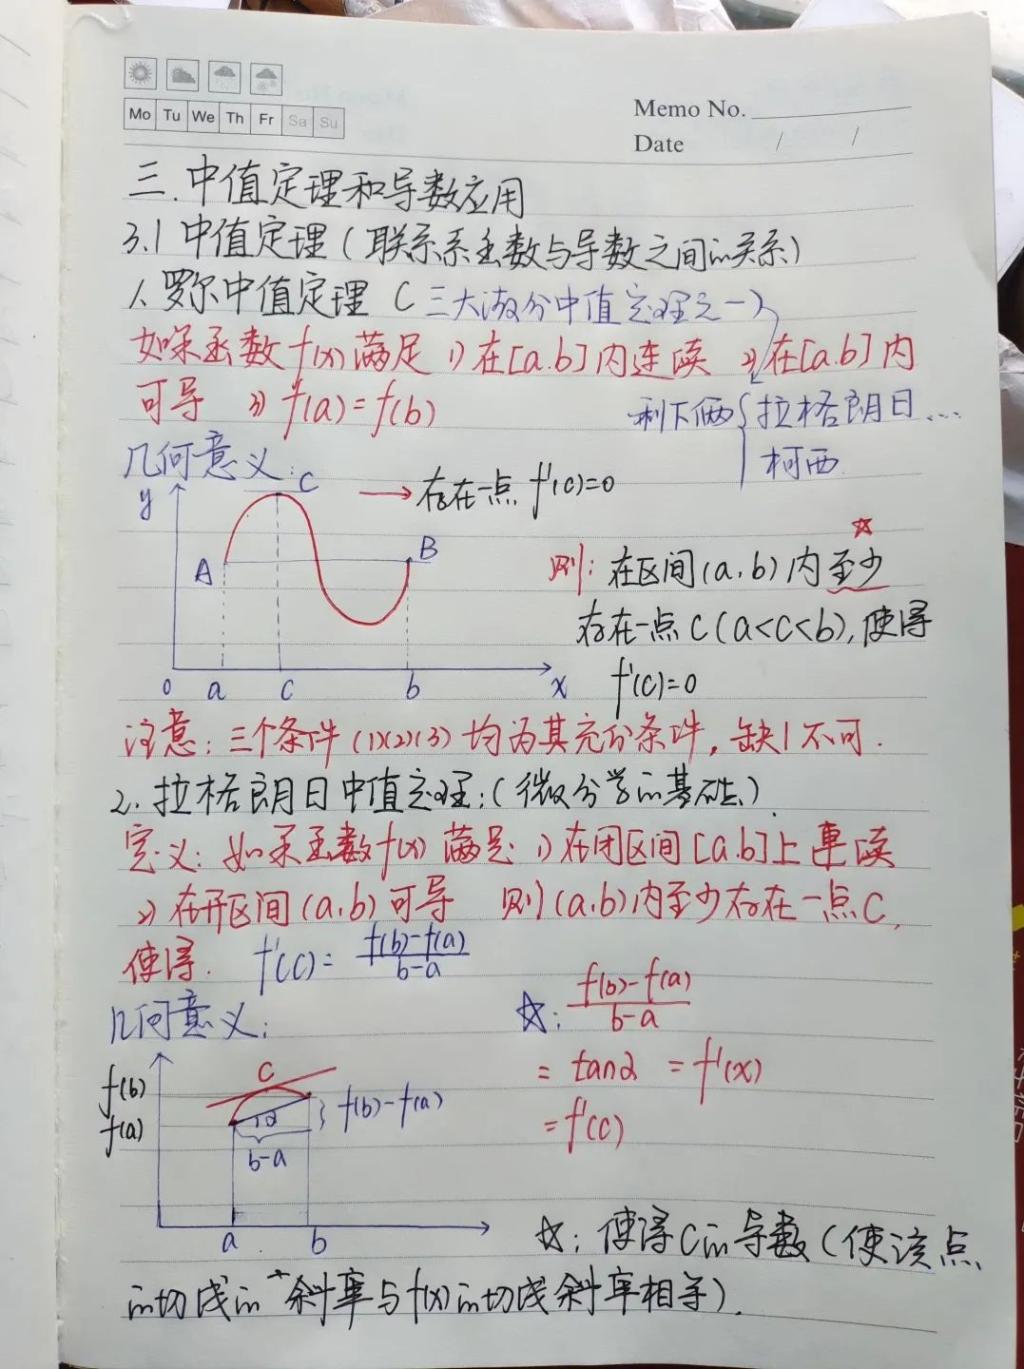 Mo Tu We Th Fr Sa Su
Memo No.
Date / /
三.中值定理和导数应用
3.1 中值定理(联系系函数与导数之间的关系)
1.罗尔中值定理 (三大微分中值定理之一)
如果函数f(x)满足 1)在[a.b]内连续 2)在[a.b]内
可导 3) f(a)=f(b)
剩下俩{拉格朗日...
柯西
几何意义:
y
C
→存在一点 f'(c)=0
A
B
☆
则:在区间(a,b)内至少
存在一点C(a<c<b),使得
f'(c)=0
0 a c b x
注意:三个条件(1)(2)(3)均为其充份条件,缺1不可.
2.拉格朗日中值定理:(微分学的基础)
定义:如果函数f(x)满足 1)在闭区间[a.b]上连续
2)在开区间(a,b)可导 则(a,b)内至少存在一点C,
使得. f'(c)= f(b)-f(a)
b-a
几何意义:
☆: f(b)-f(a)
b-a
= tanα = f'(x)
= f'(c)
C
f(b)
f(a)
α
} f(b)-f(a)
b-a
a b
☆:使得C的导数(使该点
的切线的斜率与f(x)的切线斜率相等).